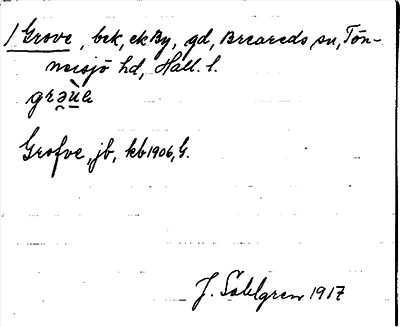 1 Grove, bck, ek By, gd, Breareds sn, Tön-
nersjö hd, Hall. l.
Grofve, jb, kb 1906, G.
J. Sahlgren 1917